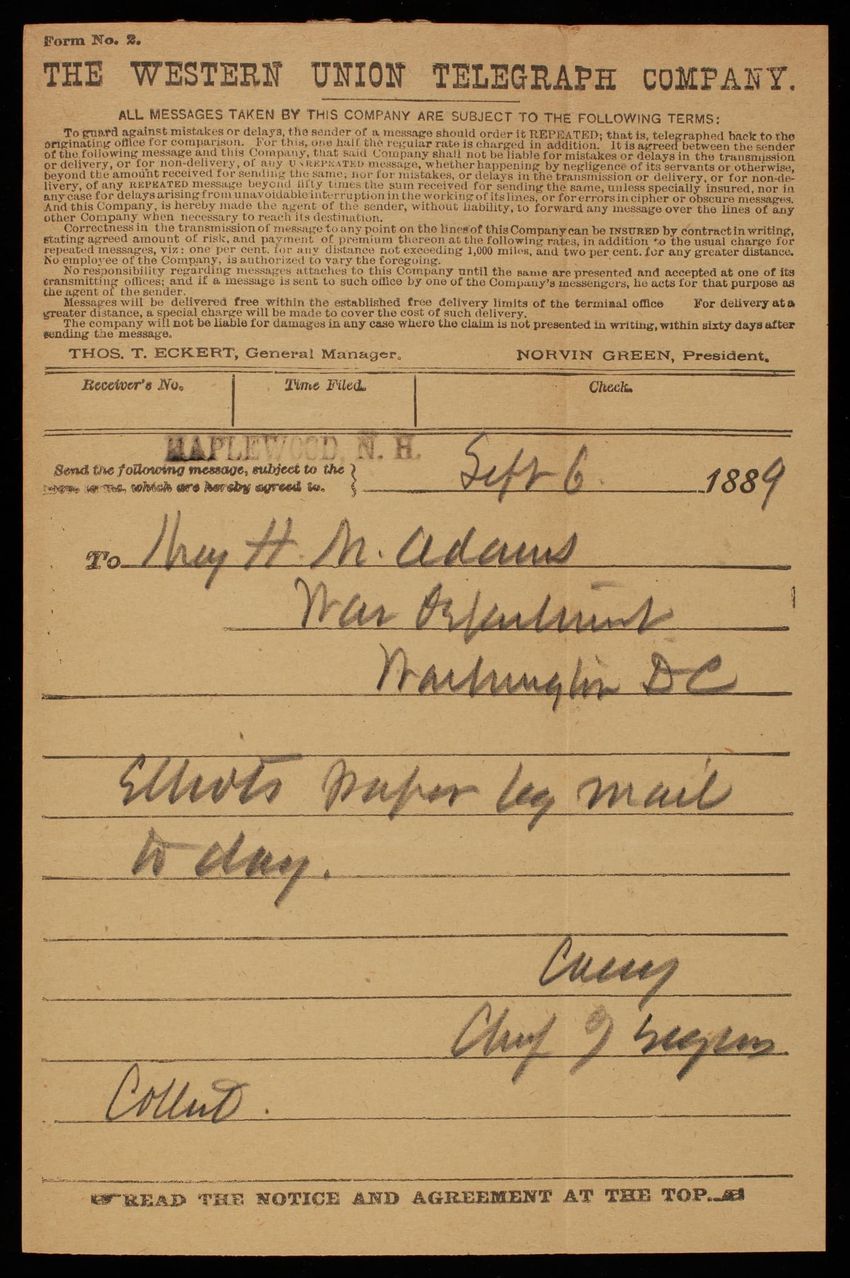 Form No. 2.
THE WESTERN UNION TELEGRAPH COMPANY.
ALL MESSAGES TAKEN BY THIS COMPANY ARE SUBJECT TO THE FOLLOWING TERMS:
To guard against mistakes or delays, the sender of a message should order it REPEATED; that is, telegraphed back to the
originating office for comparison. For this, one half the regular rate is charged in addition. It is agreed between the sender
of the following message and this Company, that said Company shall not be liable for mistakes or delays in the transmission
or delivery, or for non-delivery, of any UNREPEATED message, whether happening by negligence of its servants or otherwise,
beyond the amount received for sending the same; nor for mistakes, or delays in the transmission or delivery, or for non-de-
livery, of any REPEATED message beyond fifty times the sum received for sending the same, unless specially insured, nor in
any case for delays arising from unavoidable interruption in the working of its lines, or for errors in cipher or obscure messages.
And this Company, is hereby made the agent of the sender, without liability, to forward any message over the lines of any
other Company when necessary to reach its destination.
Correctness in the transmission of message to any point on the lines of this Company can be INSURED by contract in writing,
stating agreed amount of risk, and payment of premium thereon at the following rates, in addition to the usual charge for
repeated messages, viz: one per cent. for any distance not exceeding 1,000 miles, and two per cent. for any greater distance.
No employee of the Company, is authorized to vary the foregoing.
No responsibility regarding messages attaches to this Company until the same are presented and accepted at one of its
transmitting offices; and if a message is sent to such office by one of the Company's messengers, he acts for that purpose as
the agent of the sender.
Messages will be delivered free within the established free delivery limits of the terminal office For delivery at a
greater distance, a special charge will be made to cover the cost of such delivery.
The company will not be liable for damages in any case where the claim is not presented in writing, within sixty days after
sending the message.
THOS. T. ECKERT, General Manager. NORVIN GREEN, President.
Receiver's No. Time Filed. Check.
MAPLEWOOD, N. H.
Send the following message, subject to the
which are hereby agreed to. Sept 6 1889
To H. M. Adams
War Department
Washington DC
Elliots paper by mail
to day.
Casey
Chief of Engrs.
Collect.
READ THE NOTICE AND AGREEMENT AT THE TOP.